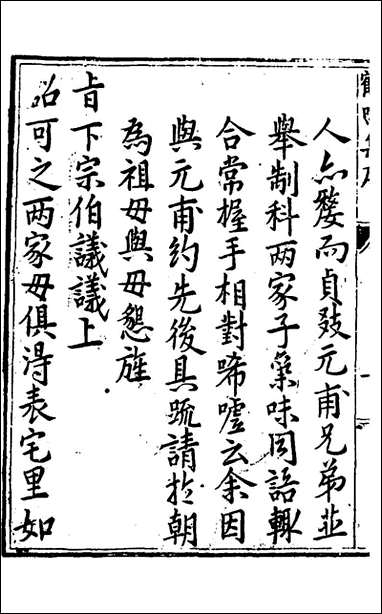 人亦嫠而貞元甫兄弟並
舉制科兩家子氣味同語輒
合常握手相對唏噓云余因
與元甫約先後具疏請於朝
為祖母與母懇旌
旨下宗伯議議上
詔可之兩家母俱得表宅里如